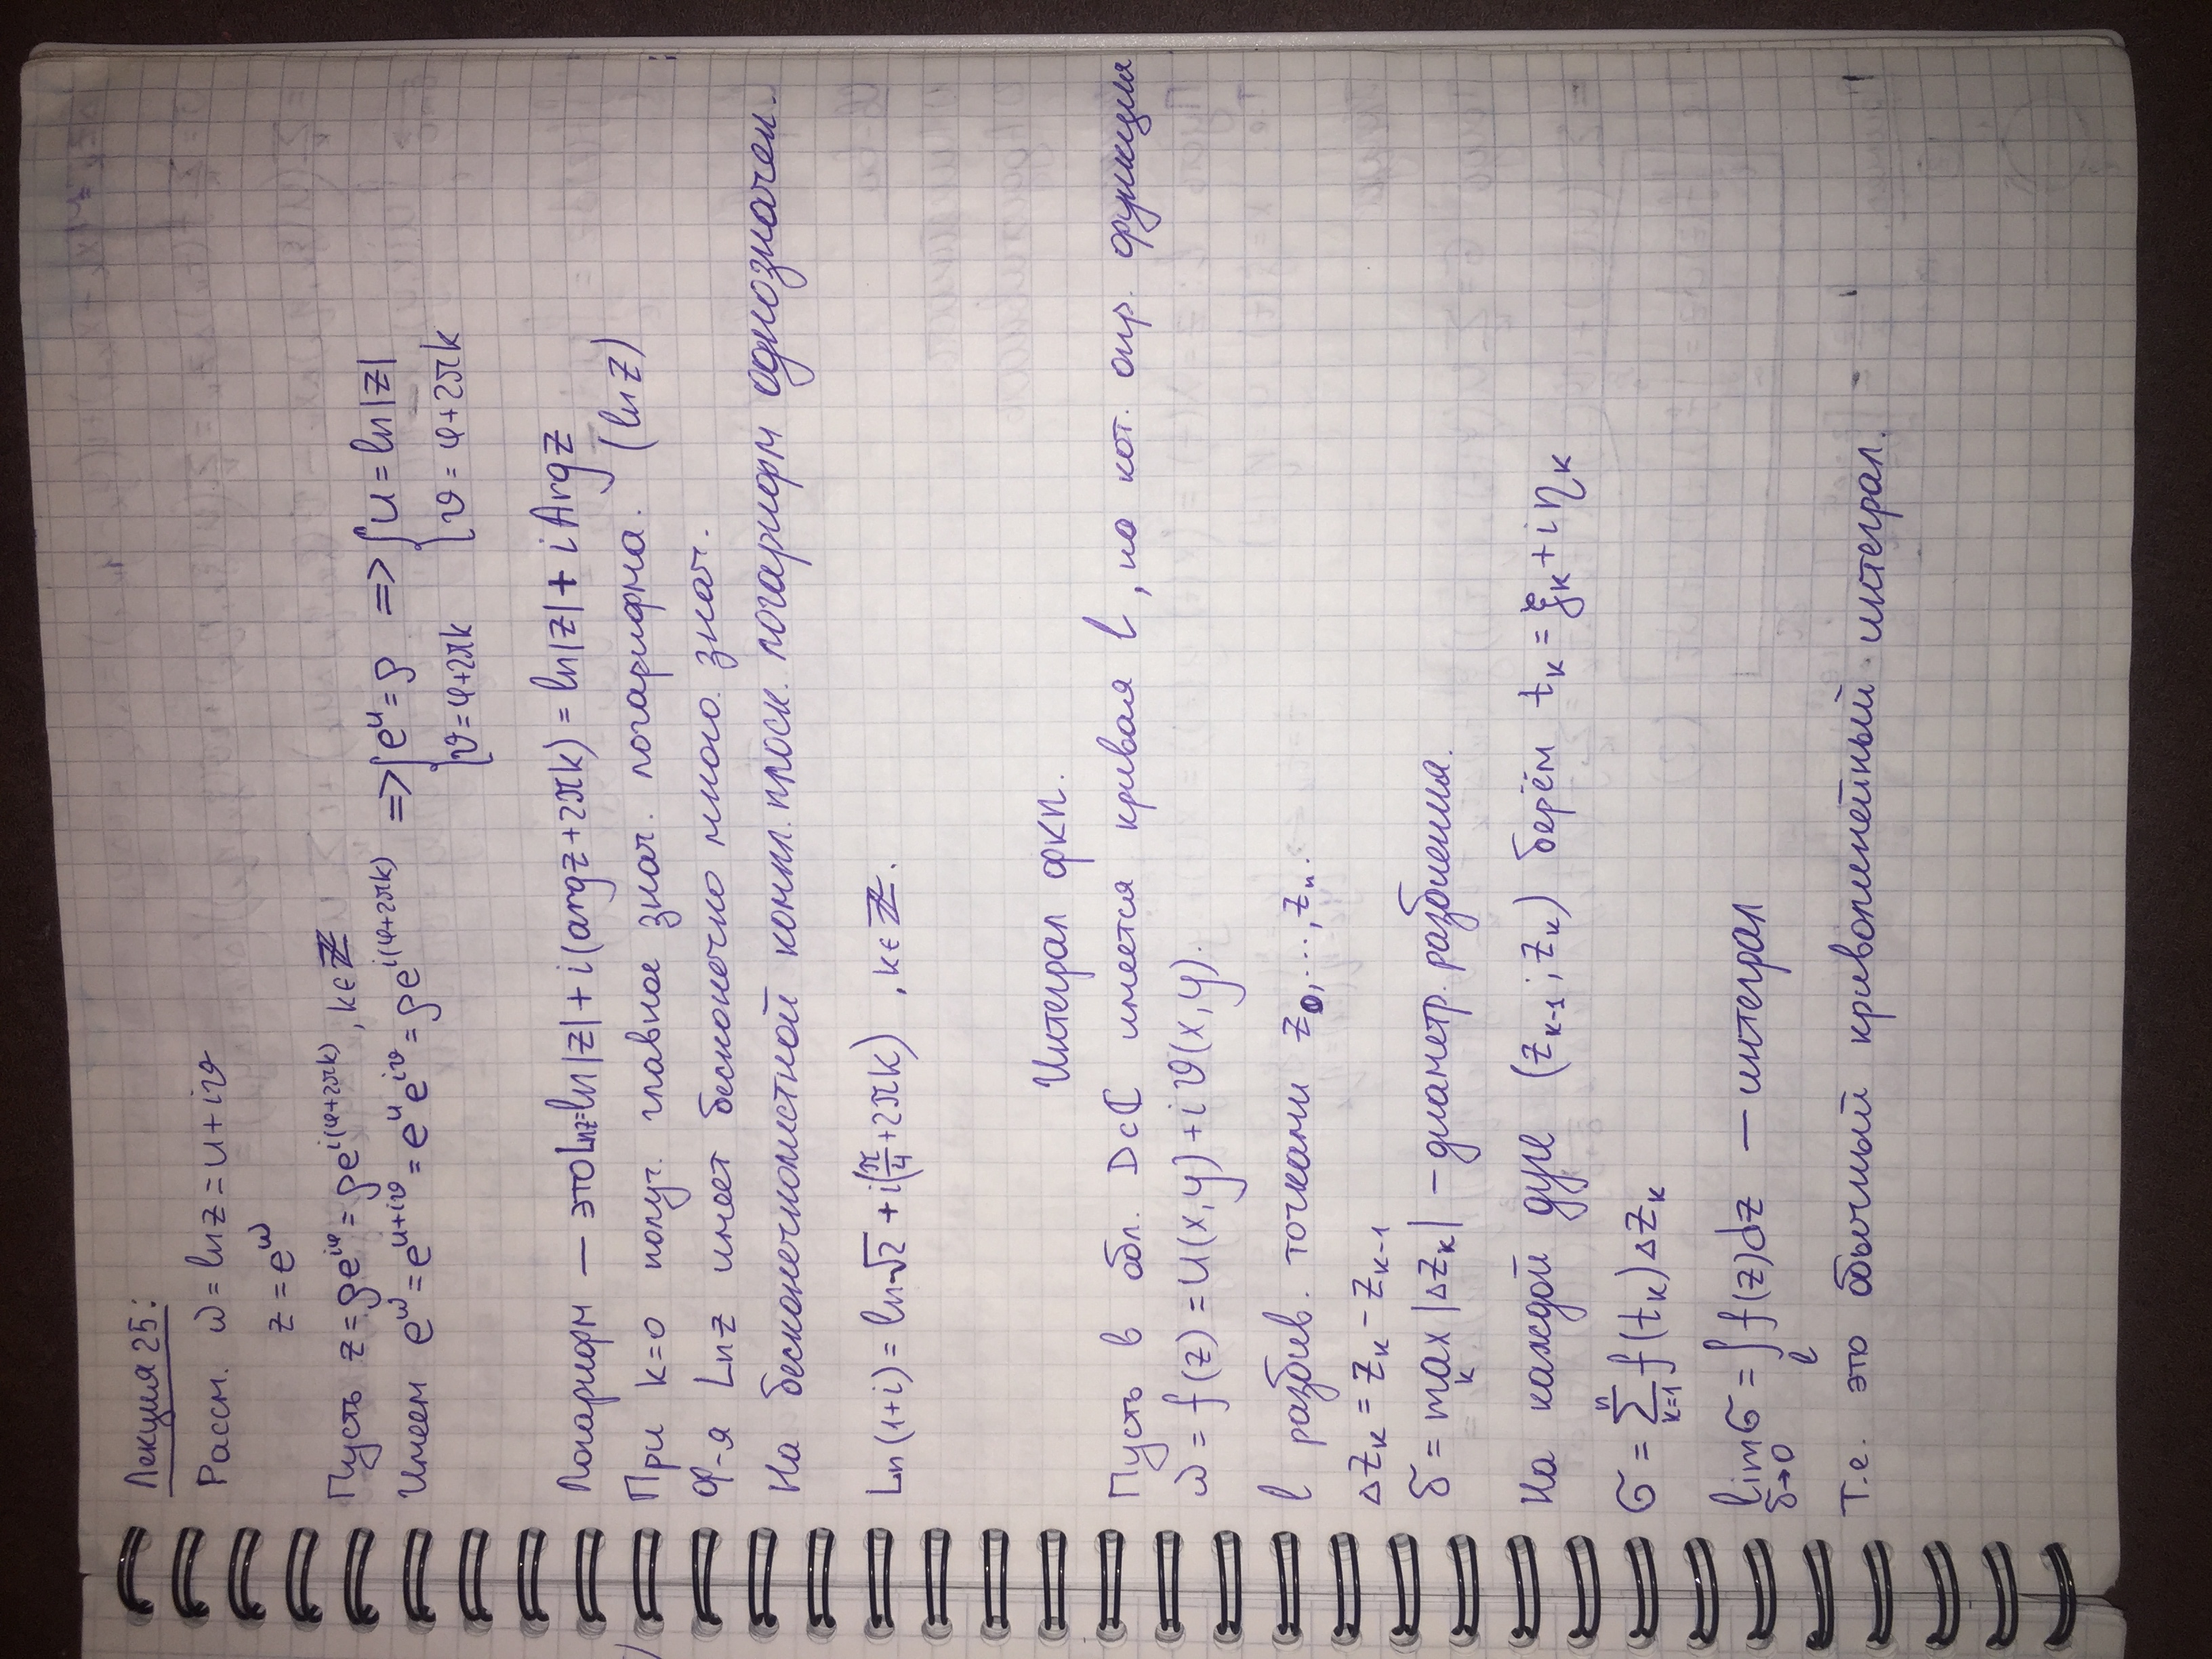 Лекция 25:
Рассм. ω = ln z = u + iϑ
z = e^ω
Пусть z = ρe^{iφ} = ρe^{i(φ+2πk)}, k∈ℤ
Имеем e^ω = e^{u+iϑ} = e^u e^{iϑ} = ρe^{i(φ+2πk)} => { e^u = ρ => { u = ln|z|
ϑ = φ+2πk ϑ = φ+2πk
Логарифм — это Ln z = ln|z| + i(arg z + 2πk) = ln|z| + i Arg z
При k=0 получ. главное знач. логарифма. (ln z)
Ф-я Ln z имеет бесконечно много знач.
На бесконечнолистной компл. плоск. логарифм однозначен.
Ln(1+i) = ln√2 + i(π/4 + 2πk), k∈ℤ.
Интеграл фкп.
Пусть в обл. D⊂ℂ имеется кривая l, на кот. опр. функция
ω = f(z) = u(x,y) + iϑ(x,y).
l разбив. точками z₀,...,zₙ.
Δz_k = z_k − z_{k−1}
δ = max_k |Δz_k| – диаметр. разбиения.
На каждой дуге (z_{k−1}; z_k) берём t_k = ξ_k + iη_k
σ = ∑_{k=1}^{n} f(t_k)Δz_k
lim_{δ→0} σ = ∫_l f(z)dz — интеграл
Т.е. это обычный криволинейный интеграл.